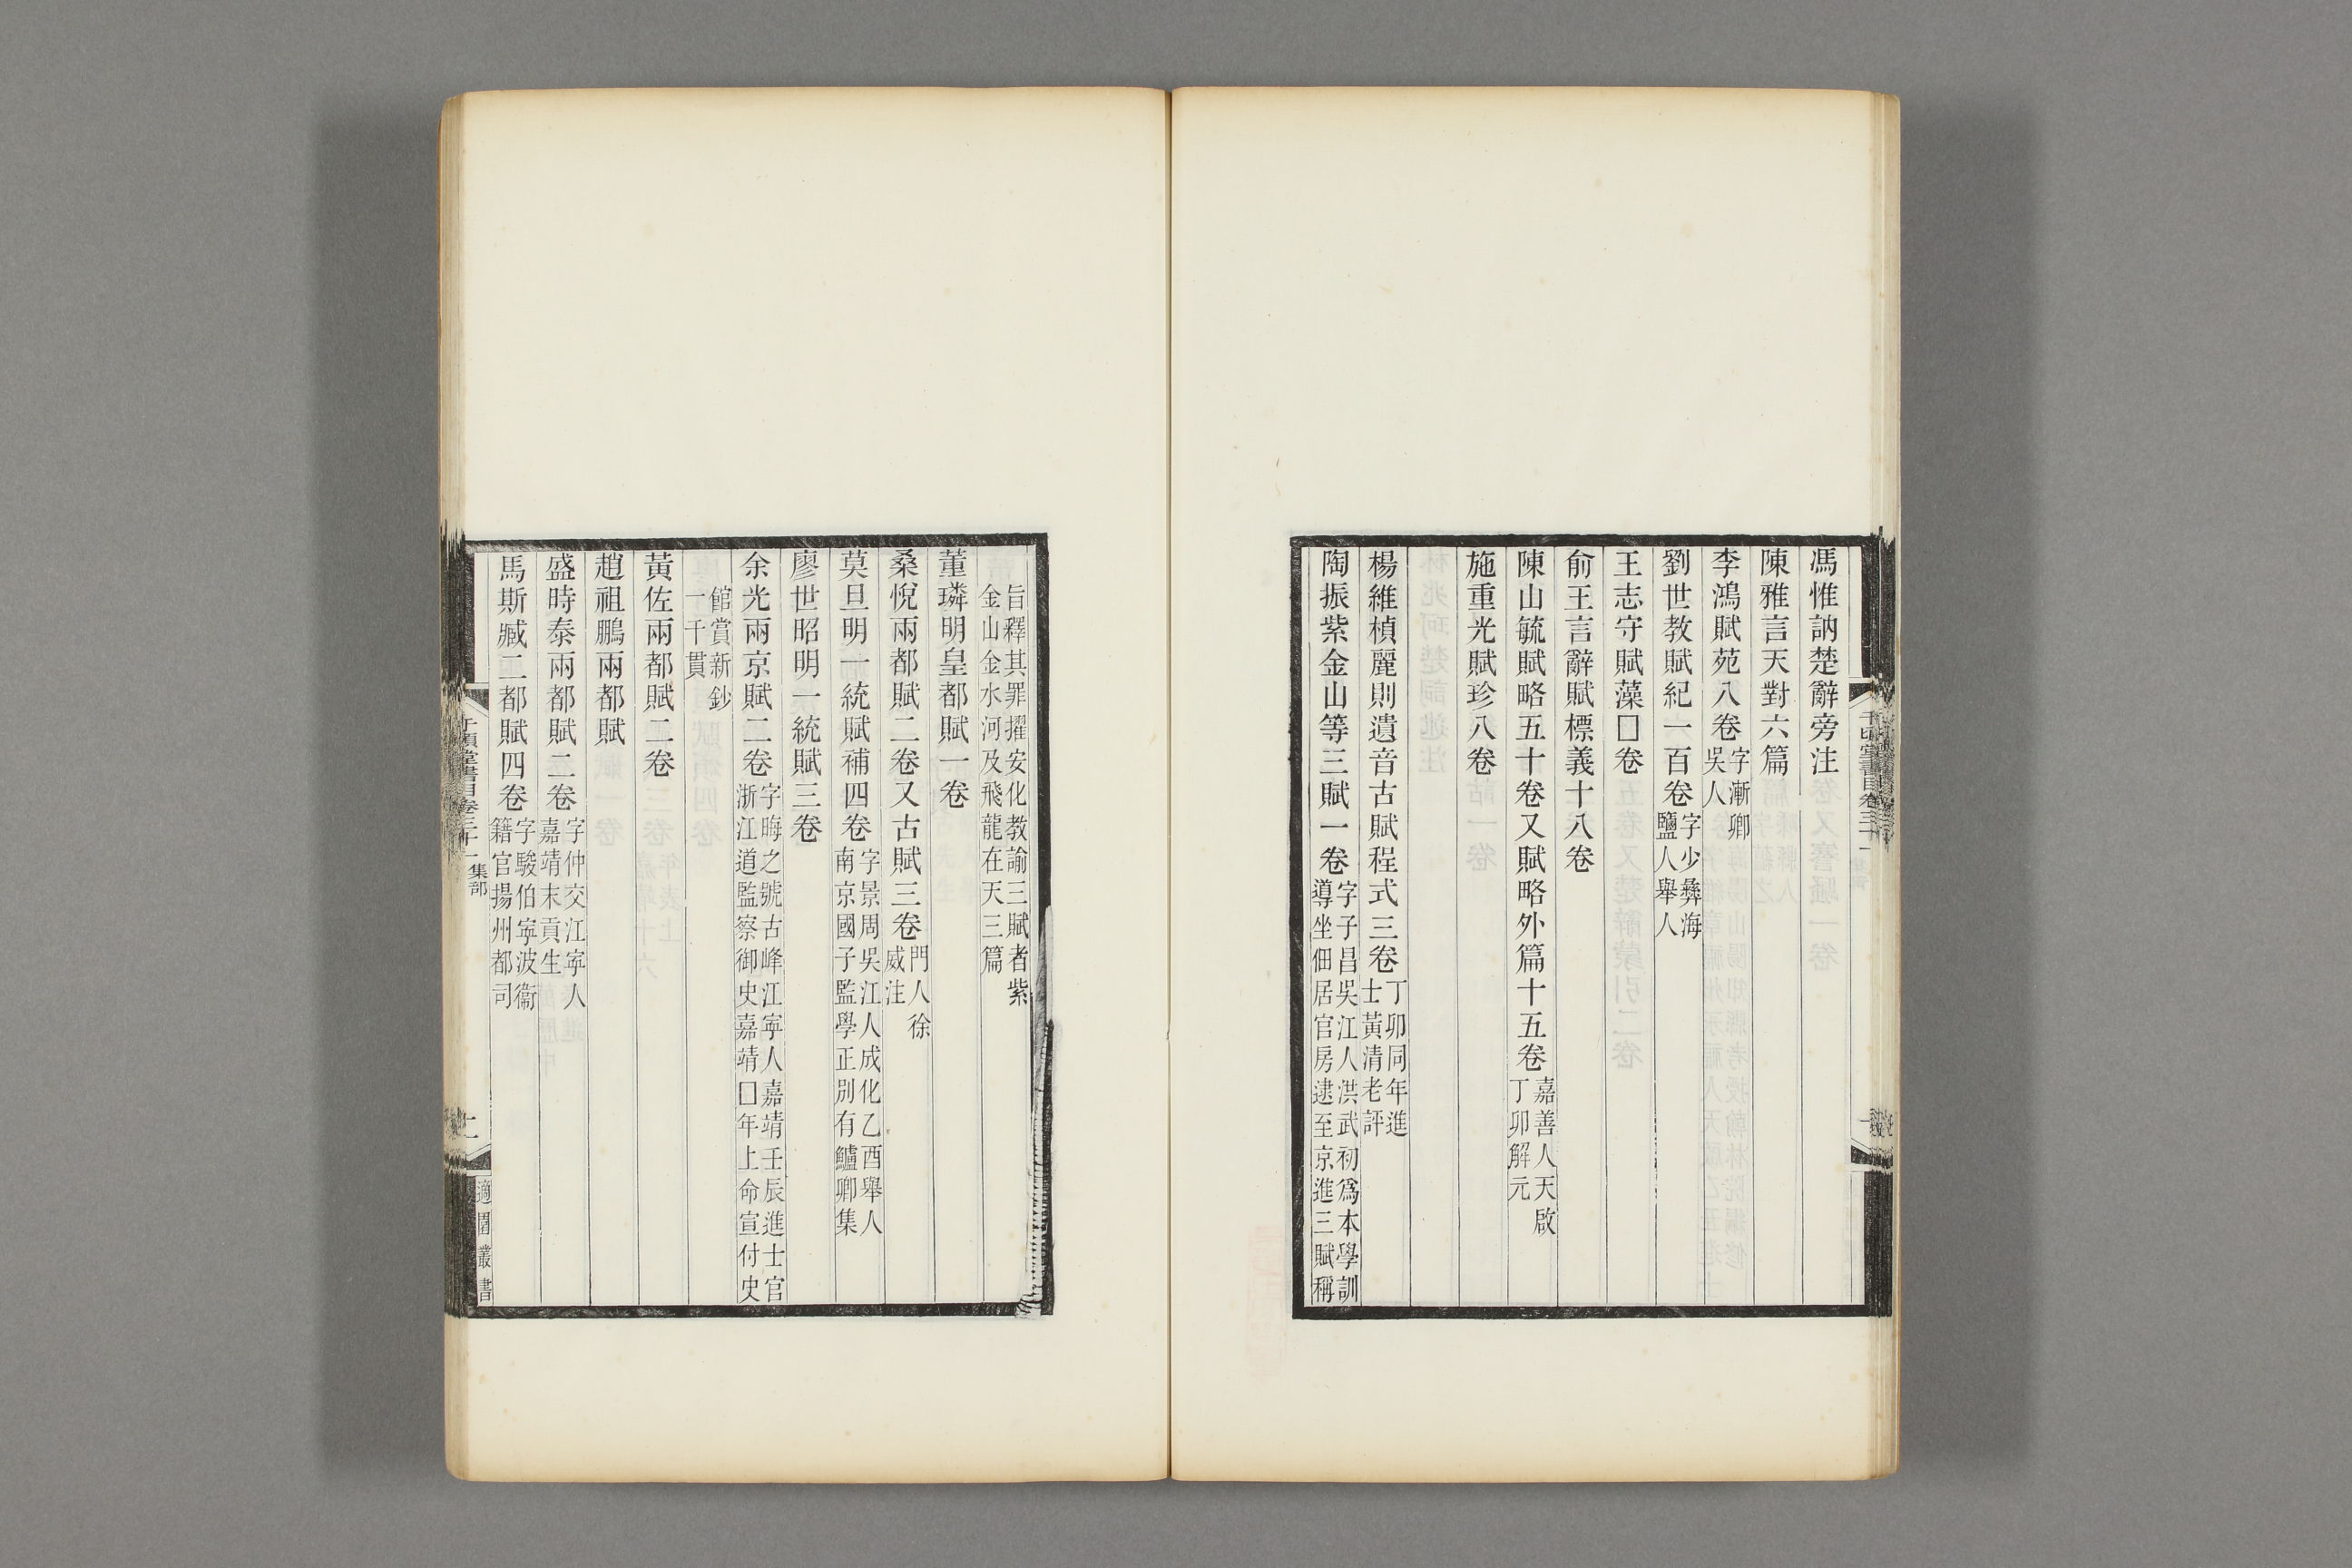 馮惟訥楚辭旁注
陳雅言天對六篇
李鴻賦苑八卷字漸卿吳人
劉世教賦紀一百卷字少彝海鹽人舉人
王志守賦藻□卷
俞王言辭賦標義十八卷
陳山毓賦略五十卷又賦略外篇十五卷嘉善人天啟丁卯解元
施重光賦珍八卷
楊維楨麗則遺音古賦程式三卷丁卯同年進士黃清老評
陶振紫金山等三賦一卷字子昌吳江人洪武初爲本學訓導坐佃居官房逮至京進三賦稱
旨釋其罪擢安化教諭三賦者紫金山金水河及飛龍在天三篇
董璘明皇都賦一卷
桑悅兩都賦二卷又古賦三卷門人徐威注
莫旦明一統賦補四卷字景周吳江人成化乙酉舉人南京國子監學正別有鱸卿集
廖世昭明一統賦三卷
余光兩京賦二卷字晦之號古峰江寧人嘉靖壬辰進士官浙江道監察御史嘉靖□年上命宣付史
館賞新鈔一千貫
黃佐兩都賦二卷
趙祖鵬兩都賦
盛時泰兩都賦二卷字仲交江寧人嘉靖末貢生
馬斯臧二都賦四卷字駿伯寧波衞籍官揚州都司
千頃堂書目卷三十一 集部
適園叢書